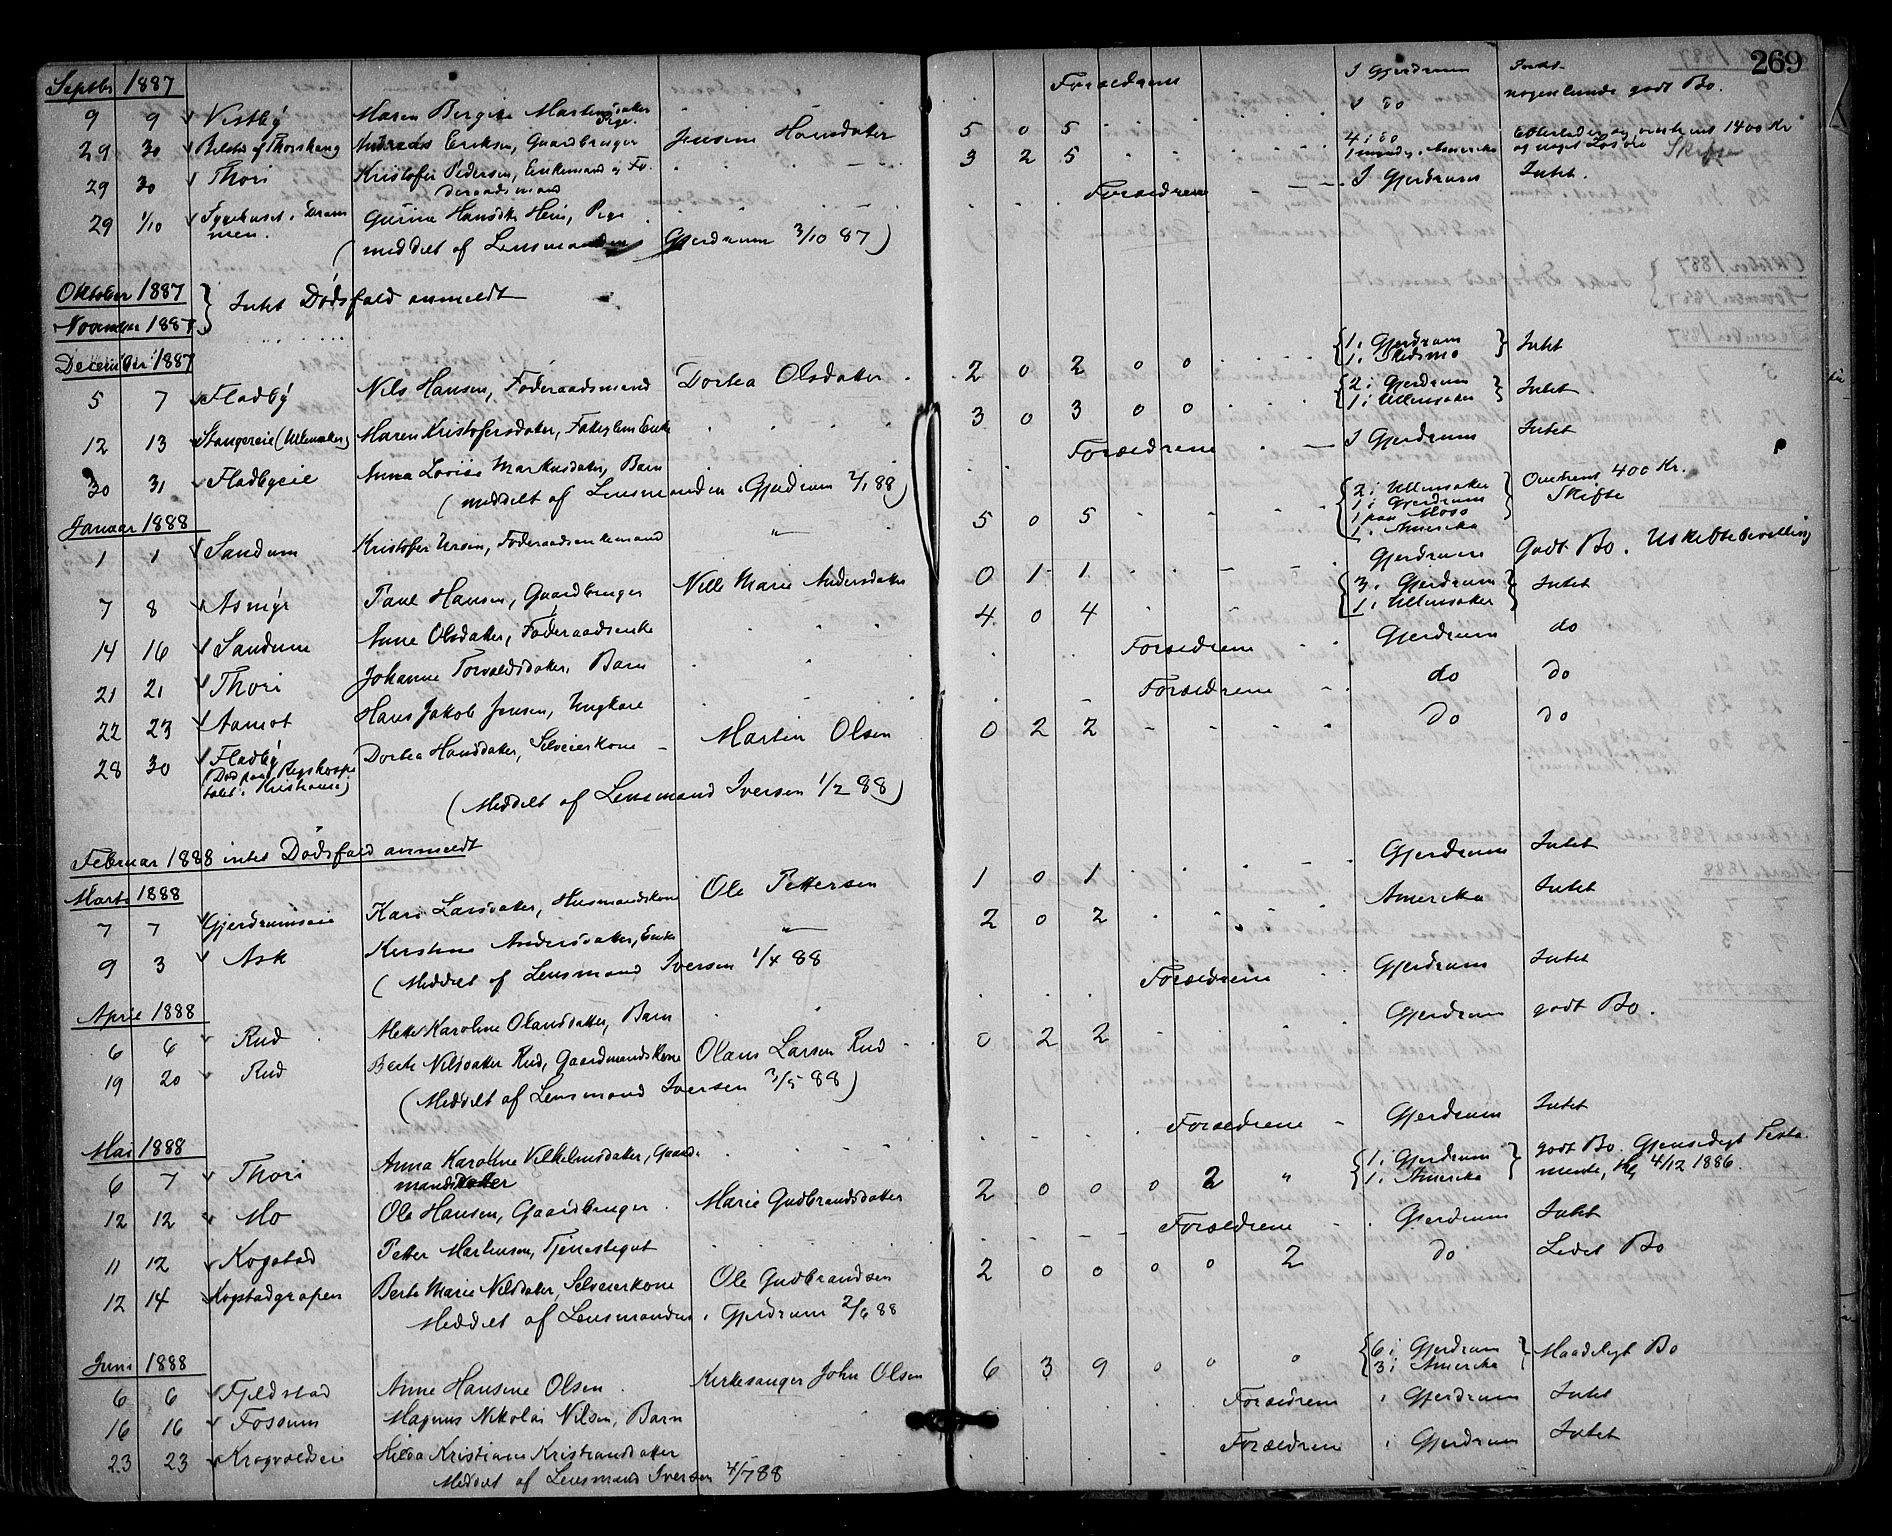 269
Septbr 1887
9 9 Vestby Maren Bergite Martinsdatter Pige. Forældrene I Gjerdrum Intet
29 30 Andreas Eriksen, Gaardbruger Jensine Hansdatter 5 0 5 i do nogenlunde godt Bo.
29 30 Thori Kristofer Pedersen, Enkemand og Fø- 3 2 5 4 i do 1400 Kr
deraadsmand Amerika og noget Løsøre Skifte
29 1/10 Sygehuset i Dram Gurine Hansdtr Hein, Pige Forældrene I Gjerdrum Intet.
men.
(meddelt af Lensmanden Gjerdrum 3/10 87)
Oktober 1887
November 1887 } Intet Dødsfald anmeldt
December 1887
5 7 Fladby Nils Hansen, Føderaadsmand Dortea Olsdatter 2 0 2 0 0 {1 i Gjerdrum 1 i Skedsmo} Intet
12 13 Stangereie (Ullensaker) Maren Kristofersdatter, Fattiglem Enke 3 0 3 0 0 {2 i Gjerdrum 1 i Ullensaker} Intet
30 31 Fladbyeie Anna Lovise Markusdatter, Barn Forældrene I Gjerdrum Intet
(meddelt af Lensmanden i Gjerdrum 2/1 88)
Januar 1888
1 1 Sandum Kristofer Ursin, Føderaadsenkemand " 5 0 5 {2 i Ullensaker 1 i Gjerdrum 1 paa Moss 1 i Amerika} Omtrent 400 Kr. Skifte
7 8 Asmyr Paul Hansen, Gaardbruger Nille Marie Andersdatter 0 1 1 Gjerdrum Godt Bo. Uskiftebevilling
14 16 Sandum Anne Olsdatter, Føderaadsenke 4 0 4 {3 i Gjerdrum 1 i Ullensaker} Intet
21 21 Thori Johanne Torvaldsdatter, Barn Forældrene Gjerdrum do
22 23 Aamot Hans Jakob Jensen, Ungkarl Forældrene do do
28 30 Fladby Dortea Hansdatter, Selveierkone Martin Olsen 0 2 2 do do
(Død paa Rigshospi
talet i Kristiania)
(Meddelt af Lensmand Iversen 1/2 88)
Februar 1888 intet Dødsfald anmeldt
Marts 1888
7 7 Gjerdrumseie Kari Larsdatter, Husmandskone Ole Pettersen 1 0 1 Gjerdrum Intet
9 3 Ask Kerstine Andersdatter, Enke " 2 0 2 Amerika Intet
(Meddelt af Lensmand Iversen 1/4 88
April 1888
6 6 Rud Mette Karoline Olausdatter, Barn Forældrene Gjerdrum Intet
19 20 Rud Berte Nilsdatter Rud, Gaardmandskone Olaus Larsen Rud 0 2 2 Gjerdrum godt Bo.
(Meddelt af Lensmand Iversen 3/5 88)
Mai 1888
6 7 Thori Anna Karoline Vilhelmsdatter, Gaard- Forældrene Gjerdrum Intet
mandsdatter
12 12 Mo Ole Hansen, Gaardbruger Marie Gudbrandsdatter 2 0 0 0 2 " {1 i Gjerdrum 1 i Amerika} godt Bo. Gjensidigt Testa-
mente, Kgl 4/12 1886.
11 12 Kogstad Petter Martinsen, Tjenestegut Forældrene Gjerdrum Intet
12 14 Kogstadgropen Berte Marie Nilsdatter, Selveierkone Ole Gudbrandsen 2 0 0 0 0 2 do Lidet Bo
Meddelt af Lensmanden i Gjerdrum 2/6 88
Juni 1888
6 6 Fjeldstad Anne Hansine Olsen Kirkesanger John Olsen 6 3 9 0 0 0 {6 i Gjerdrum 3 i Amerika} Maadeligt Bo
16 16 Fossum Magnus Nikolai Nilsen, Barn Forældrene i Gjerdrum Intet
23 23 Krogvoldeie Hilda Kristiane Kristiansdatter Forældrene i Gjerdrum Intet
Meddelt af Lensmand Iversen 4/7 88